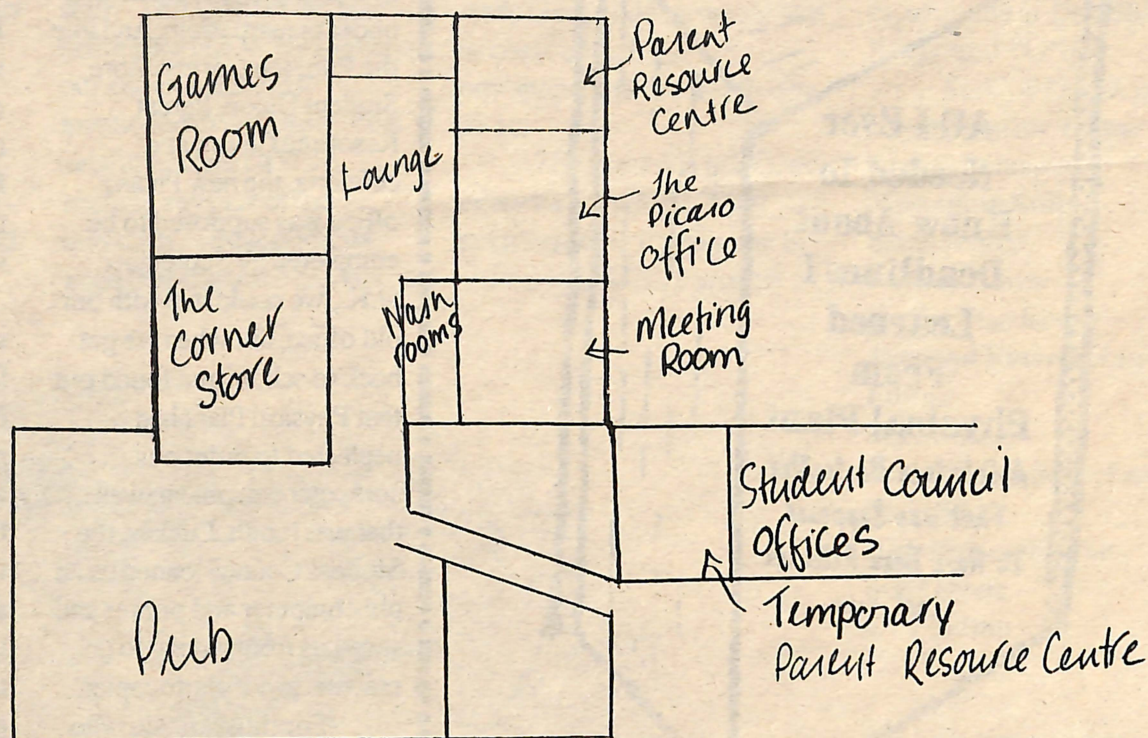 Games
Room
Lounge
Parent
Resource
Centre
The
Picaro
Office
The
Corner
Store
Wash
rooms
Meeting
Room
Student Council
Offices
Temporary
Parent Resource Centre
Pub